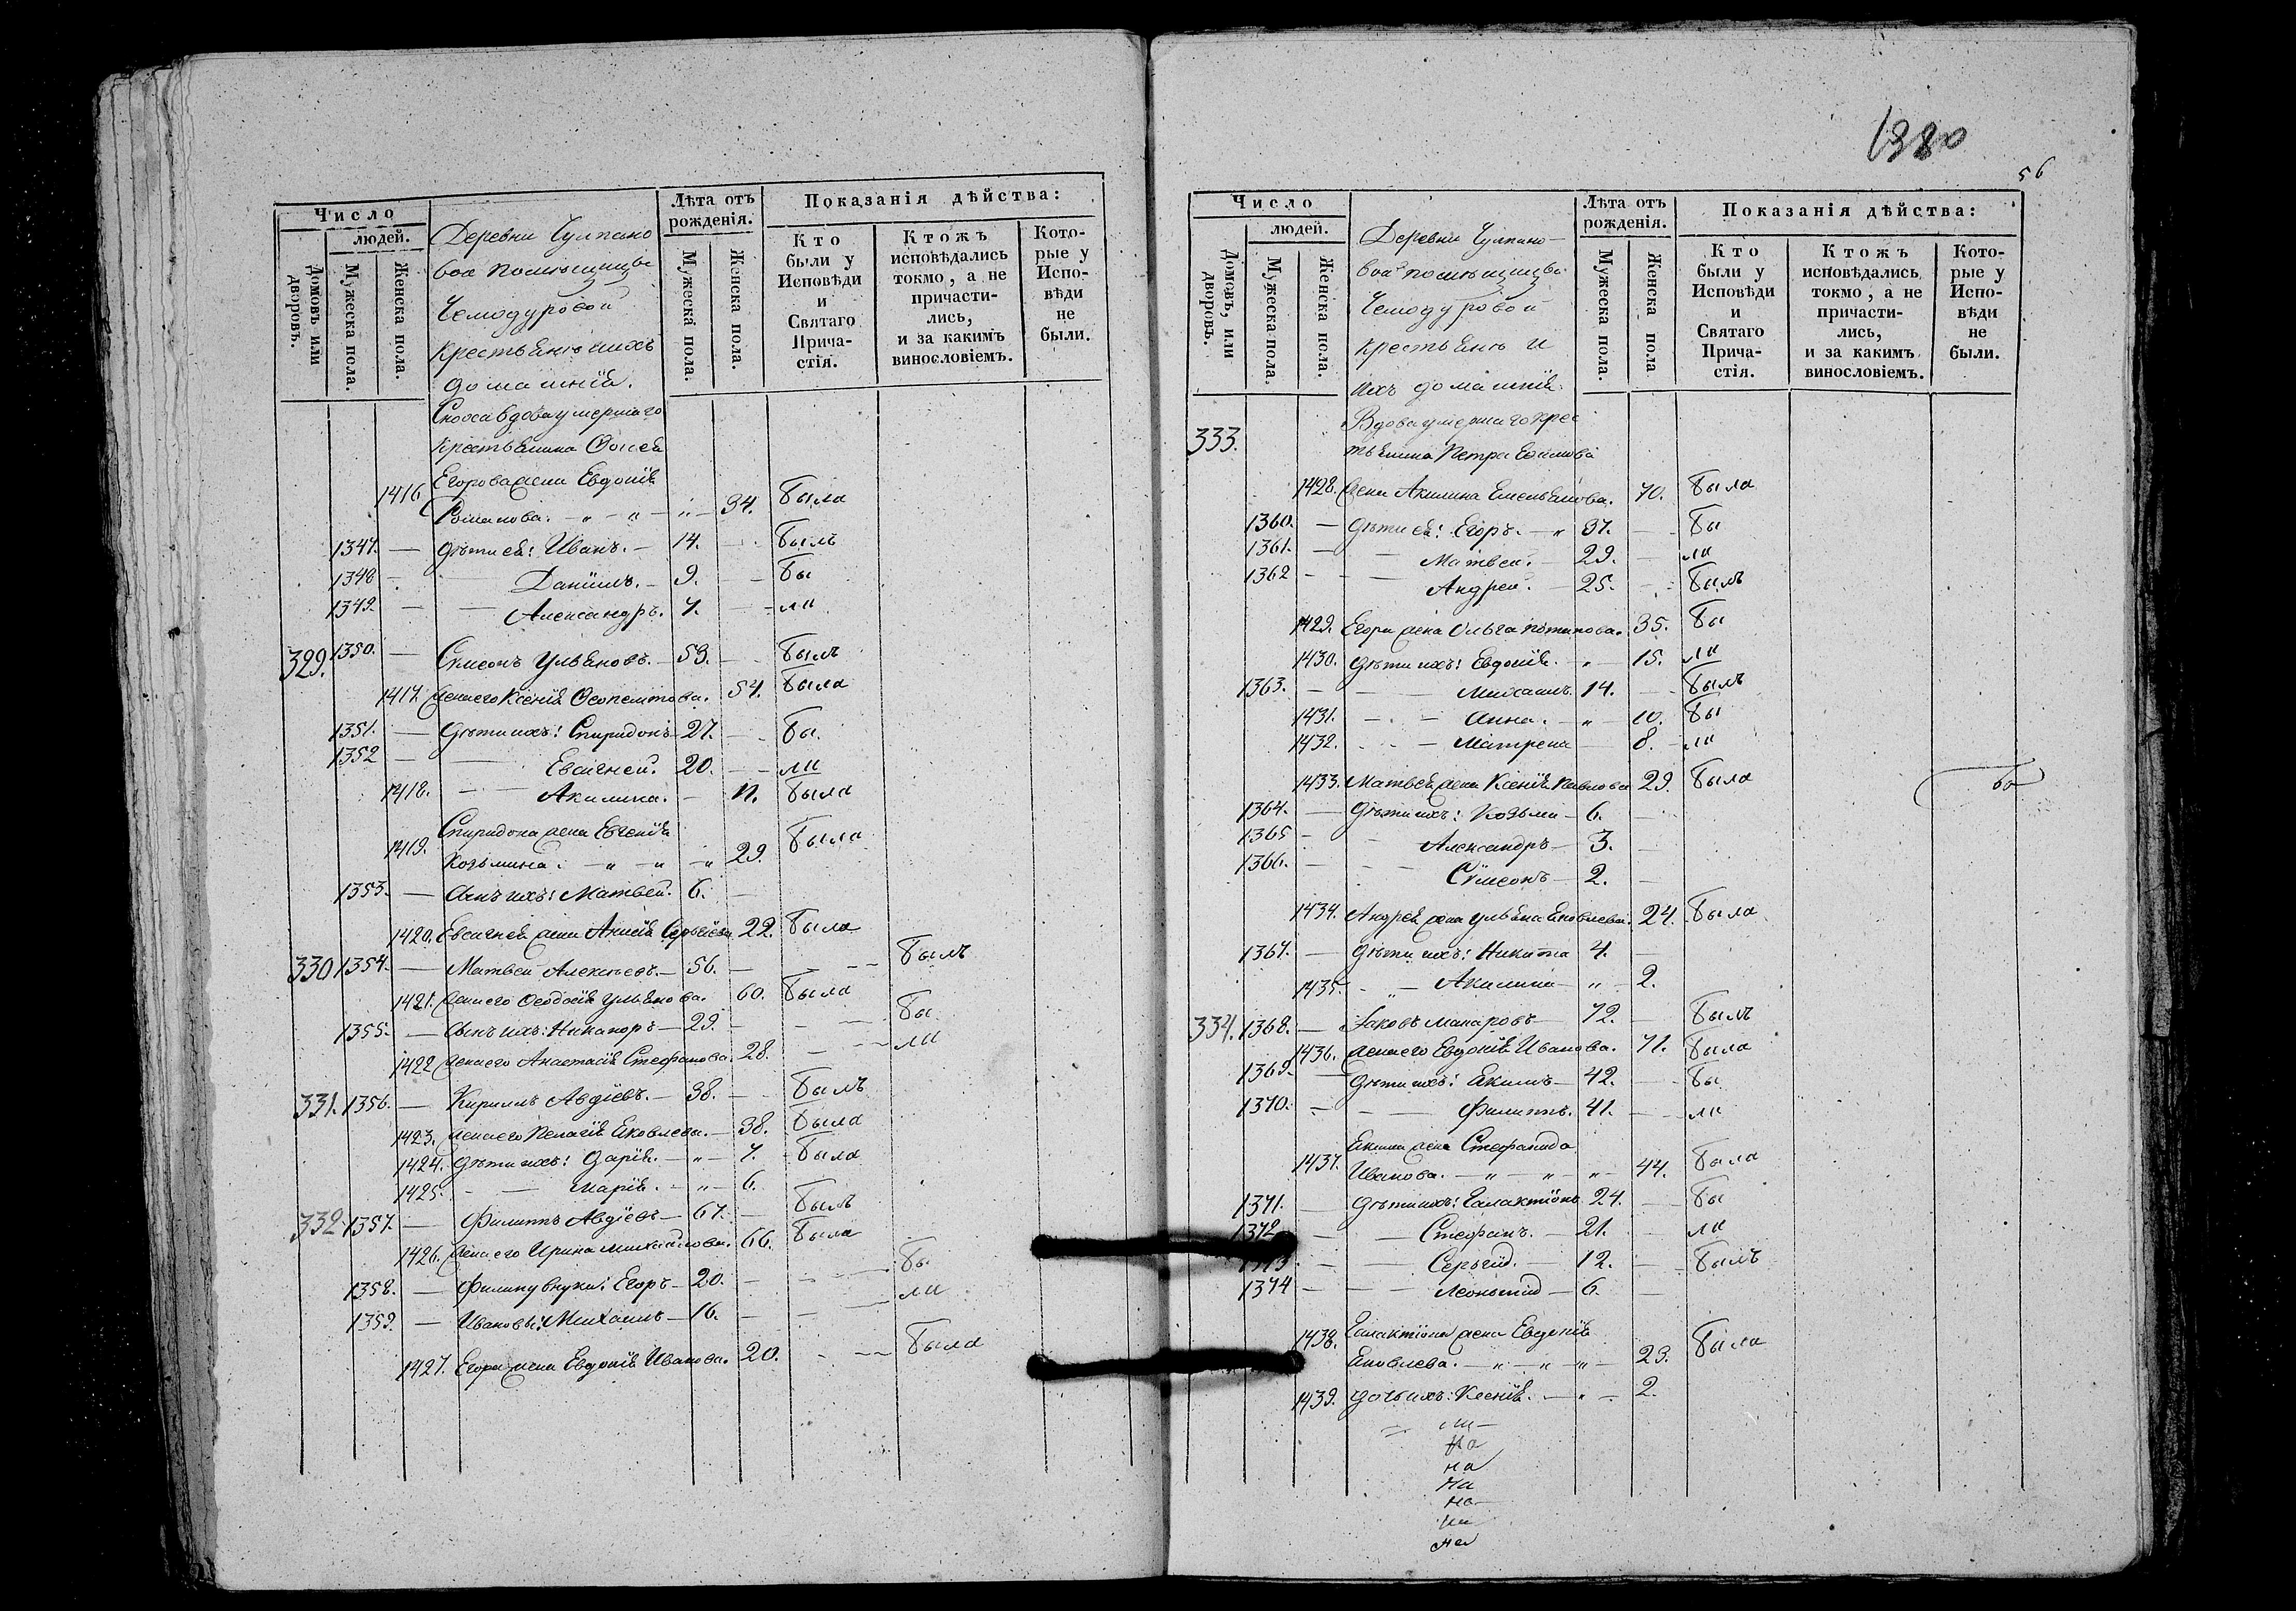 Число
людей.
Домовъ или дворовъ.
Мужеска пола.
Женска пола.
Деревни Чулпано
вой помѣщицы
Чемодуровой
крестьяне ихъ
домашнія.
Лѣта отъ рожденія.
Мужеска пола.
Женска пола.
Показанія дѣйства:
Кто были у Исповѣди и Святаго Причастія.
Ктожъ исповѣдались токмо, а не причастились, и за какимъ винословіемъ.
Которые у Исповѣди не были.
Сноха вдова умершаго
крестьянина
1416 Егорова жена Евдокія
Романова. 34. была
1347. дѣти ея: Иванъ. 14. былъ
1348 Даніилъ. 9. бы
1349. Александръ. 7. ли
329. 1350. Симеонъ Ульяновъ. 53. былъ
1417. жена его Ксенія 54. была
1351. дѣти ихъ: Спиридонъ 27. бы
1352 Евсигней. 20. ли
1418. Акилина. была
Спиридона жена Евгенія
1419. Козьмина. 29. была
1353. сынъ ихъ: Матвей. 6.
1420. Евсигнея жена Анисія Сергѣева 22. была
330 1354. Матвей Алексѣевъ. 56. былъ
1421. жена его Ѳеодосія Ульянова. 60. была
1355. сынъ ихъ: Никаноръ 29. бы
1422 жена его Анастасія Стефанова. 28. ли
331. 1356. Кирилъ Авдіевъ. 38. былъ
1423. жена его Пелагія Яковлева. 38. была
1424. дѣти ихъ: Дарія. 7. была
1425. Марія. 6.
332 1357. Филиппъ Авдіевъ 67. былъ
1426. жена его Ирина Михайлова. 66. была
1358. Филипу внуки: Егоръ 20. бы
1359. Ивановы: Михаилъ 16. ли
1427. Егора жена Евдокія Иванова. 20. была
1380
56
Число
людей.
Домовъ, или дворовъ.
Мужеска пола.
Женска пола.
Деревни Чулпано
вой помѣщицы
Чемодуровой
крестьяне и
ихъ домашнія.
Лѣта отъ рожденія.
Мужеска пола.
Женска пола
Показанія дѣйства:
Кто были у Исповѣди и Святаго Причастія.
Ктожъ исповѣдались токмо, а не причастились, и за какимъ винословіемъ.
Которые у Исповѣди не были.
333. Вдова умершаго крес
тьянина Петра Екимова
1428. жена Акилина Емельянова. 70. была
1360. дѣти ея: Егоръ. 37. бы
1361. Матвей. 29. ли
1362 Андрей. 25. былъ
1429. Егора жена Ольга Потапова. 35. бы
1430. дѣти ихъ: Евдокія. 15. ли
1363. Михаилъ. 14. былъ
1431. Анна. 10. бы
1432. Матрена 8. ли
1433. Матвея жена Ксенія Павлова 29. была
1364. дѣти ихъ: Козьма 6.
1365 Александръ 3.
1366. Симеонъ 2.
1434. Андрея жена Ульяна Яковлева. 24. была
1367. дѣти ихъ: Никита 4.
1435. Акилина 2.
334. 1368. Іаковъ Макаровъ 72. былъ
1436. жена его Евдокія Иванова. 71. была
1369. дѣти ихъ: Екимъ 42. бы
1370. Филиппъ. 41. ли
Екима жена Стефанида
1437. Иванова. 44. была
1371. дѣти ихъ: Галактіонъ 24. бы
1372 Стефанъ. 21. ли
1373 Сергій. 12. былъ
1374 Леонтій 6.
1438. Галактіона жена Евдокія
Яковлева. 23. была
1439. дочь ихъ: Ксенія. 2.
на
на
на
на
на
на